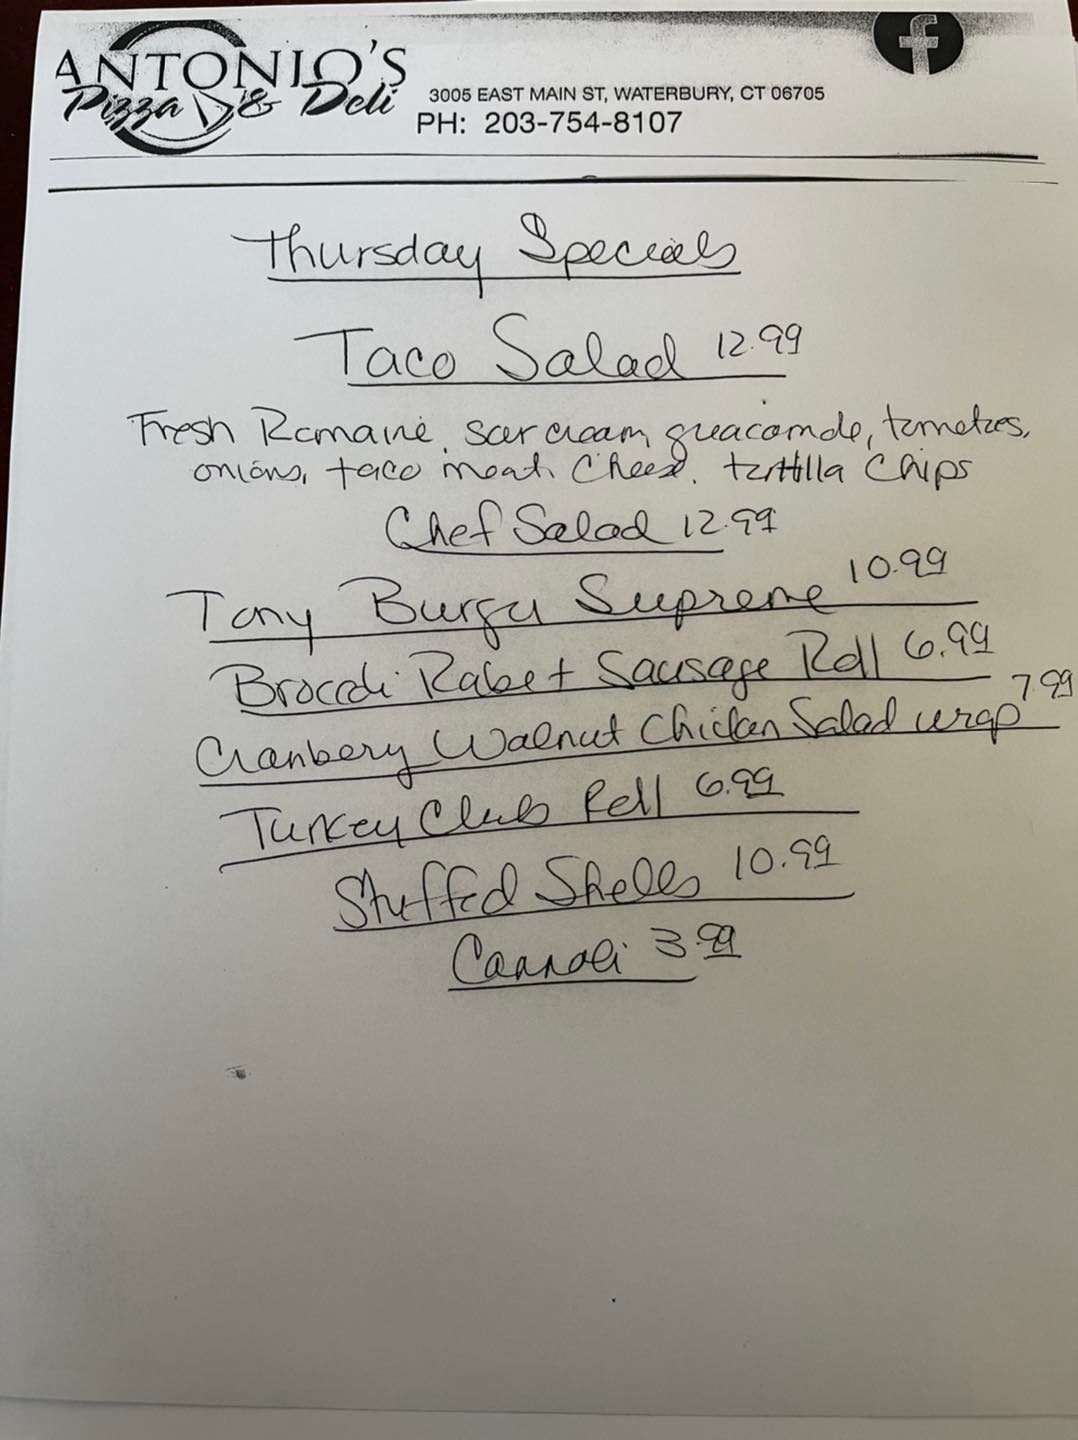 ANTONIO'S
Pizza & Deli
3005 EAST MAIN ST, WATERBURY, CT 06705
PH: 203-754-8107
f
Thursday Specials
Taco Salad 12.99
Fresh Romaine, sour cream, guacamole, tomatoes,
onions, taco meat, Cheese, tortilla Chips
Chef Salad 12.99
Tony Burger Supreme 10.99
Broccoli Rabe + Sausage Roll 6.99
Cranbery Walnut Chicken Salad wrap 7.99
Turkey Club Roll 6.99
Stuffed Shells 10.99
Cannoli 3.99